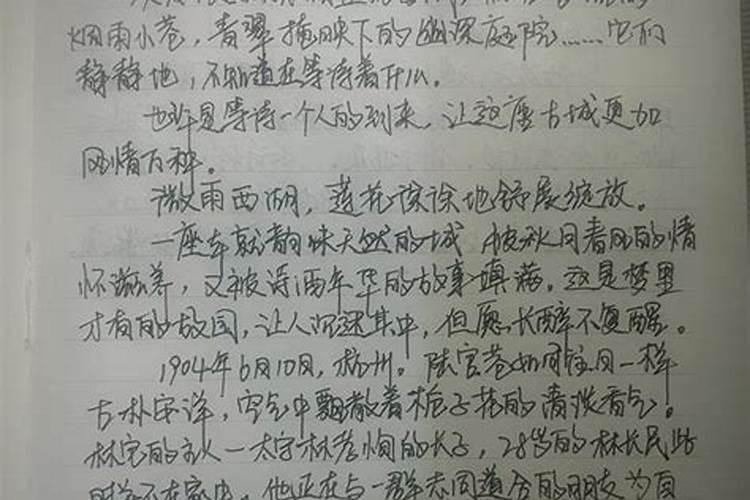 烟雨小巷，青翠掩映下的幽深庭院……它们
静静地，不知道在等待着什么。
也许是等待一个人的到来，让这座古城更加
风情万种。
微雨西湖，莲花徐徐地舒展绽放。
一座本就韵味天然的城，被秋月春风的情
怀滋养，又被诗酒年华的故事填满。这是梦里
才有的故国，让人沉迷其中，但愿长醉不复醒。
1904年6月10日，杭州。陆官巷如同往日一样
古朴安详，空气中飘散着栀子花的清淡香气。
林宅的主人—太守林孝恂的长子，28岁的林长民此
时并不在家中。他正在与一群志同道合的朋友为自